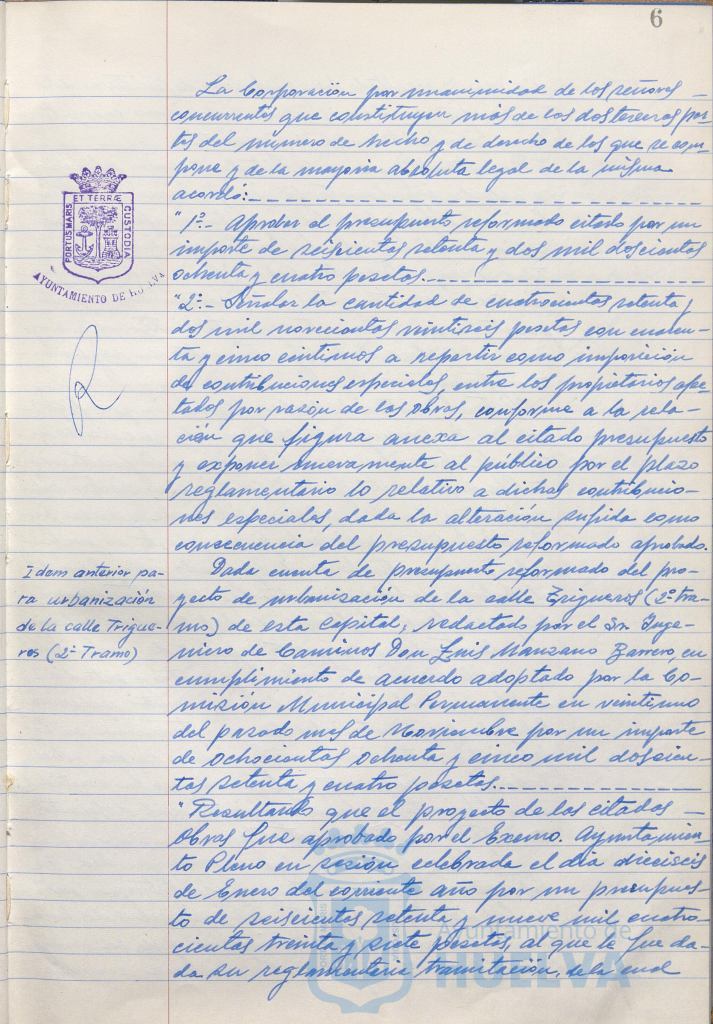 6
La Corporación por unanimidad de los señores
concurrentes que constituyen más de las dos terceras par-
tes del número de hecho y de derecho de los que se com-
pone y de la mayoría absoluta legal de la misma
acordó:
"1º.- Aprobar el presupuesto reformado citado por un
importe de seiscientas setenta y dos mil doscientas
ochenta y cuatro pesetas.
"2º.- Señalar la cantidad de cuatrocientas setenta y
dos mil novecientas veintiseis pesetas con cuaren-
ta y cinco céntimos a repartir como imposición
de contribuciones especiales, entre los propietarios afec-
tados por razón de las obras, conforme a la rela-
ción que figura anexa al citado presupuesto
y exponer nuevamente al público por el plazo
reglamentario lo relativo a dichas contribucio-
nes especiales, dada la alteración sufrida como
consecuencia del presupuesto reformado aprobado.
Idem anterior pa-
ra urbanización
de la calle Trigue-
ros (2º Tramo)
Dada cuenta de presupuesto reformado del pro-
yecto de urbanización de la calle Trigueros (2º tra-
mo) de esta Capital, redactado por el Sr. Inge-
niero de Caminos Don Luis Manzano Barrero, en
cumplimiento de acuerdo adoptado por la Co-
misión Municipal Permanente en veintiuno
del pasado mes de Noviembre por un importe
de ochocientas ochenta y cinco mil doscien-
tas setenta y cuatro pesetas.
"Resultando que el proyecto de las citadas
Obras fue aprobado por el Excmo. Ayuntamien-
to Pleno en sesión celebrada el día dieciseis
de Enero del corriente año por un presupues-
to de seiscientas setenta y nueve mil cuatro-
cientas treinta y siete pesetas, al que le fue da-
da su reglamentaria tramitación, de la cual
PORTUS MARIS ET TERRÆ CUSTODIA
AYUNTAMIENTO DE HUELVA
Ayuntamiento de
HUELVA